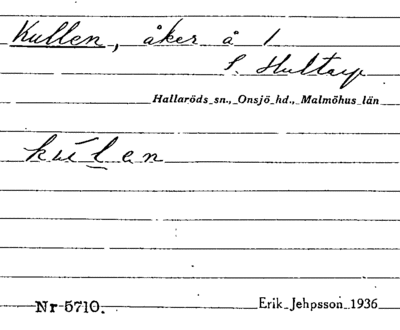 Kullen, åker å 1
S. Hultarp
Hallaröds sn., Onsjö hd., Malmöhus län
kúlen
Nr 5710. Erik Jehpsson 1936